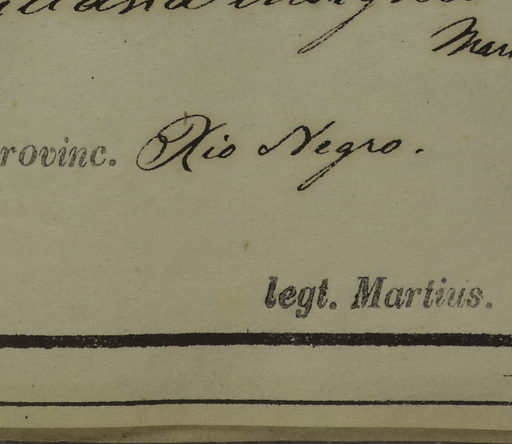 rovinc. Rio Negro.
legt. Martius.